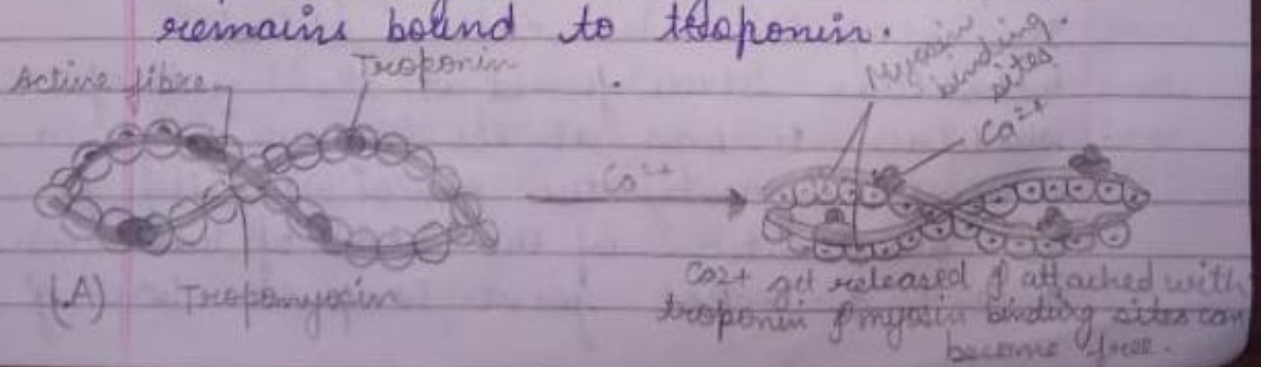 remains bound to troponin.
Active fibre
Troponin
Myosin
binding
sites
Ca2+
Ca2+
(A) Tropomyosin
Ca2+ get released & attached with
troponin & myosin binding sites can
become free.